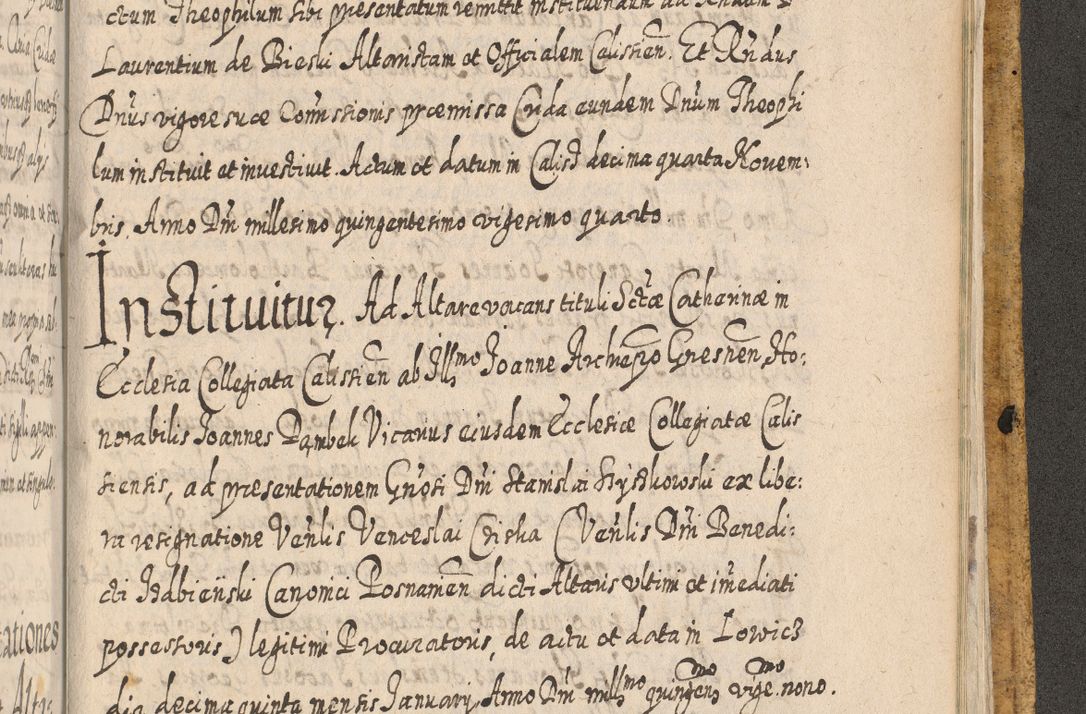 ctum Theophilum sibi presentatum remittit instituendum ad
Laurentium de Bieski Altaristam et Officialem Calissien. Et Rndus
Dnus vigore suæ Commissionis præmissa Crida eundem Dnum Theophi
lum instituit et investivit. Actum et datum in Calis decima quarta Novem:
bris. Anno Dni millesimo quingentesimo vigesimo quarto.
Instituitur. Ad Altare vacans tituli Sctæ Catharinæ in
Ecclesia Collegiata Calissien ab Illmo Joanne Archiepo Gnesnen, Ho:
norabilis Joannes Dambek Vicarius eiusdem Ecclesiæ Collegiatæ Calis
siensis, ad presentationem Gnosi Dni Stanislai ex libe:
ra resignatione Venlis Venceslai (Venlis Dni Benedi:
cti Izdbienski Canonici Posnanien dicti Altaris ultimi et imediati
possessoris) legitimi Procuratoris, de actu et data in Lowicz
die decima quinta mensis Januarij, Anno Dni millmo quingenmo vige.mo nono.